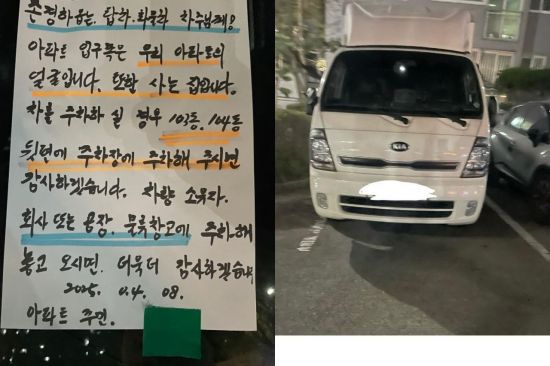 존경하옵는, 탑차.화물차 차주님께!
아파트 입구쪽은 우리 아파트의
얼굴입니다. 또한 사는 집입니다.
차를 주차하실 경우 103동, 104동
뒷면에 주차장에 주차해 주시면
감사하겠습니다. 차량 소유자.
회사 또는 용장. 물류창고에 주차해
놓고 오시면. 더욱더 감사하겠습니다
2025. 04. 08.
아파트 주민.
KIA